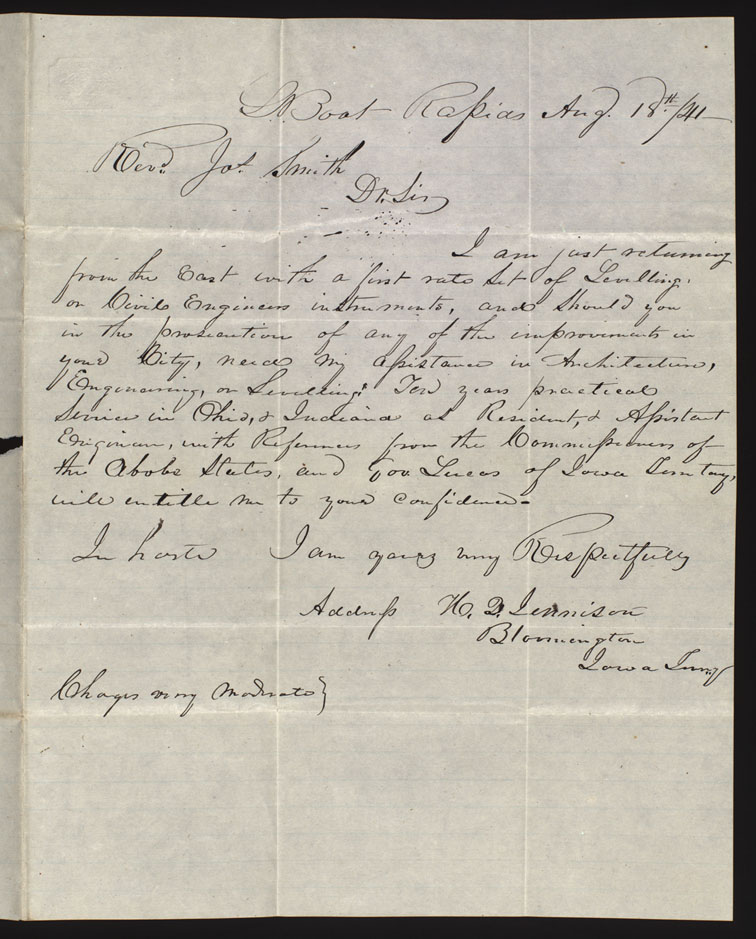 S. Boat Rapids Aug. 18th /41
Revd. Jos. Smith
Dr. Sir
I am just returning
from the East with a first rate Set of Levelling.
or Civil Engineers instruments, and should you
in the prosecution of any of the improvements in
your City, need my assistance in Architecture,
Engineering, or Levelling; Ten years practical
Service in Ohio, & Indiana as Resident, & Assistant
Engineer, with References from the Commissioners of
the Above States, and Gov. Lucas of Iowa Territory,
will entitle me to your confidence-
In haste I am yours very Respectfully
Address H. D. Jennison
Bloomington
Iowa Terry
Charges very moderate}